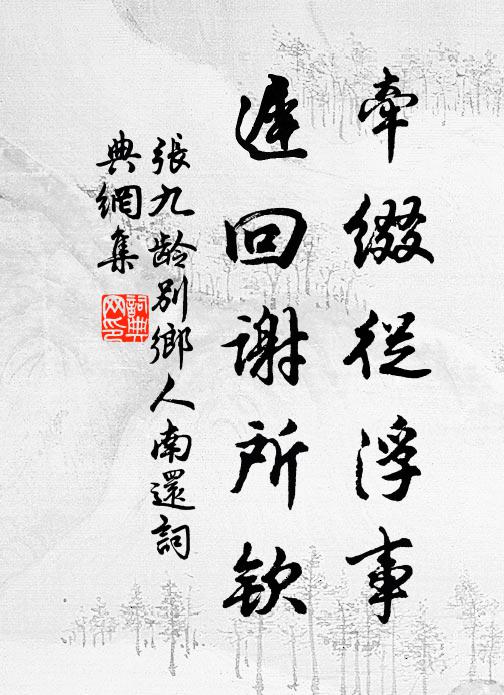 牽綴從浮事
遲回謝所欽
張九龄別鄉人南還詞
典網集
詞典网印